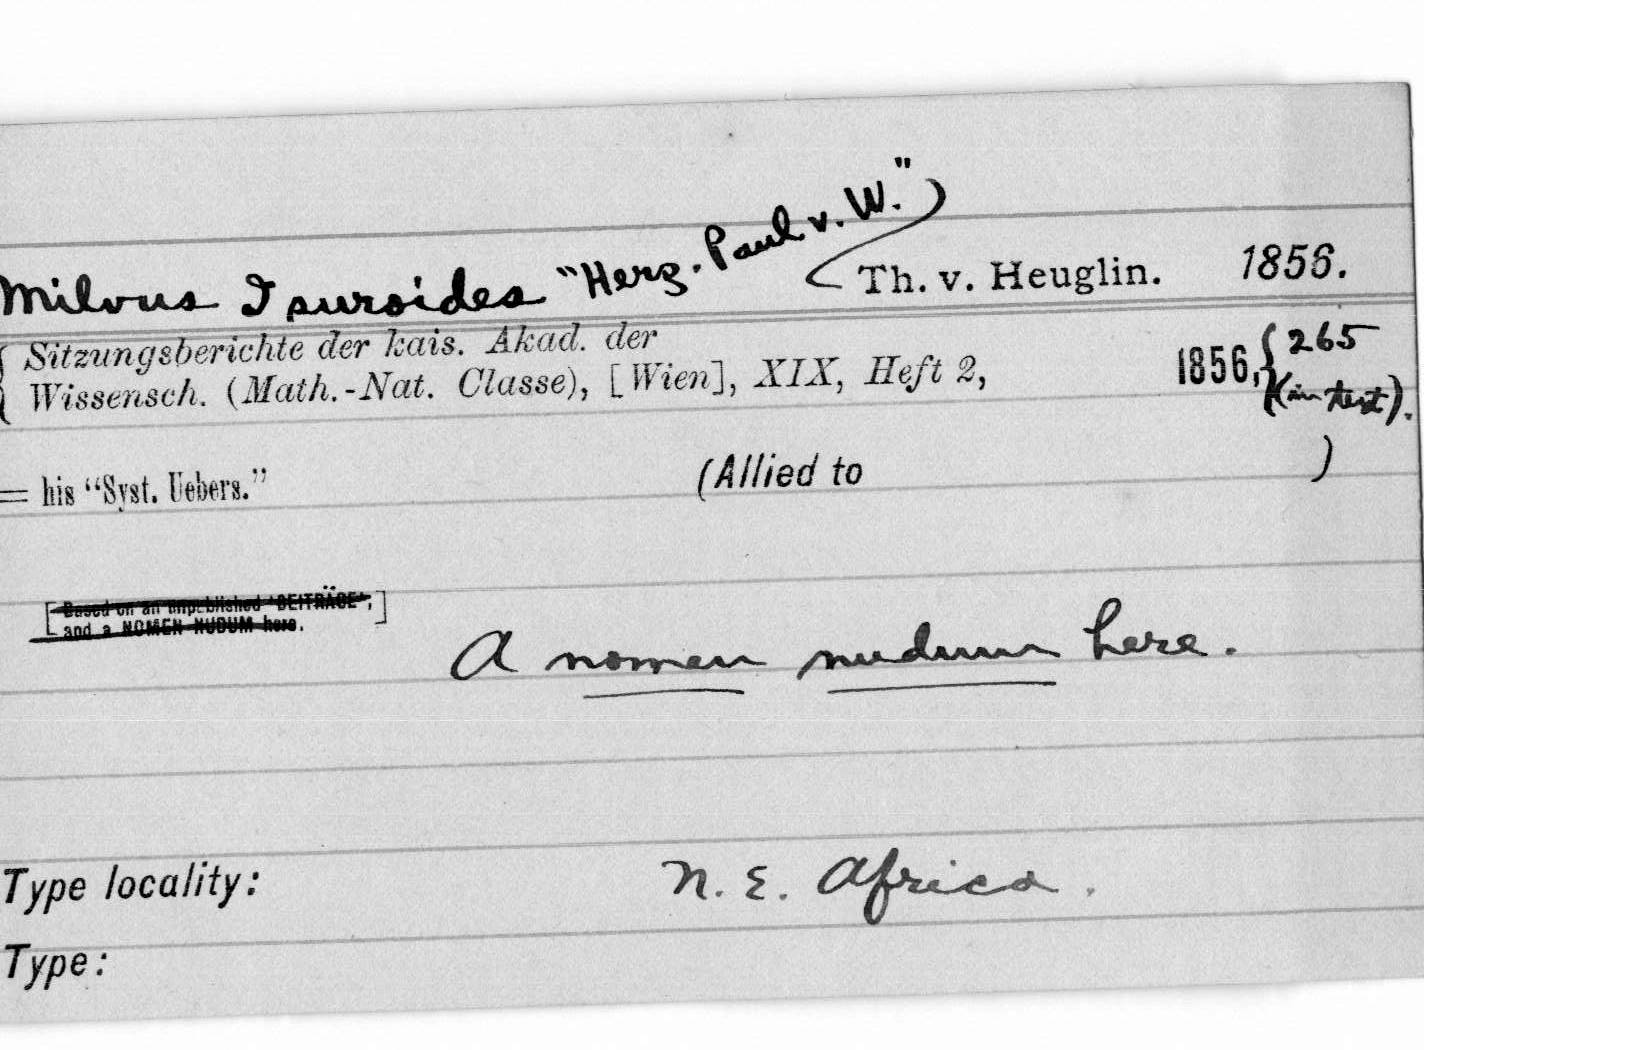 Milvus Isuroides "Herz. Paul v. W." Th. v. Heuglin. 1856.
Sitzungsberichte der kais. Akad. der
Wissensch. (Math.-Nat. Classe), [Wien], XIX, Heft 2, 1856, {265
(in text).
= his "Syst. Uebers." (Allied to )
[Based on an unpublished 'BEITRÄGE',
and a NOMEN NUDUM here.]
A nomen nudum here.
Type locality: N. E. Africa.
Type: